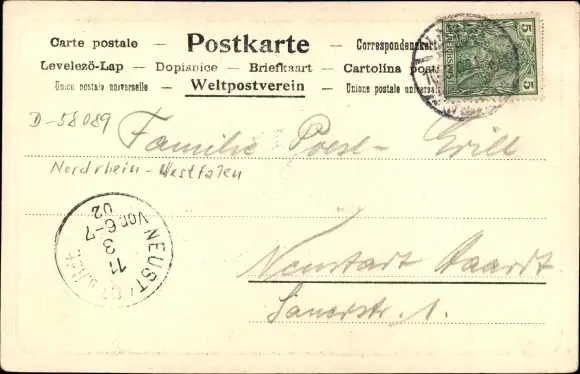 Carte postale — Postkarte — Correspondenzkarte
Levelező-Lap — Dopisnice — Briefkaart — Cartolina postale
Union postale universelle — Weltpostverein — Unione postale universale
5 5
D-58089
Familie Poest-Grill
Nordrhein-Westfalen
NEUST
11 3 02
Vor 6-7
Neustadt Haardt
1.